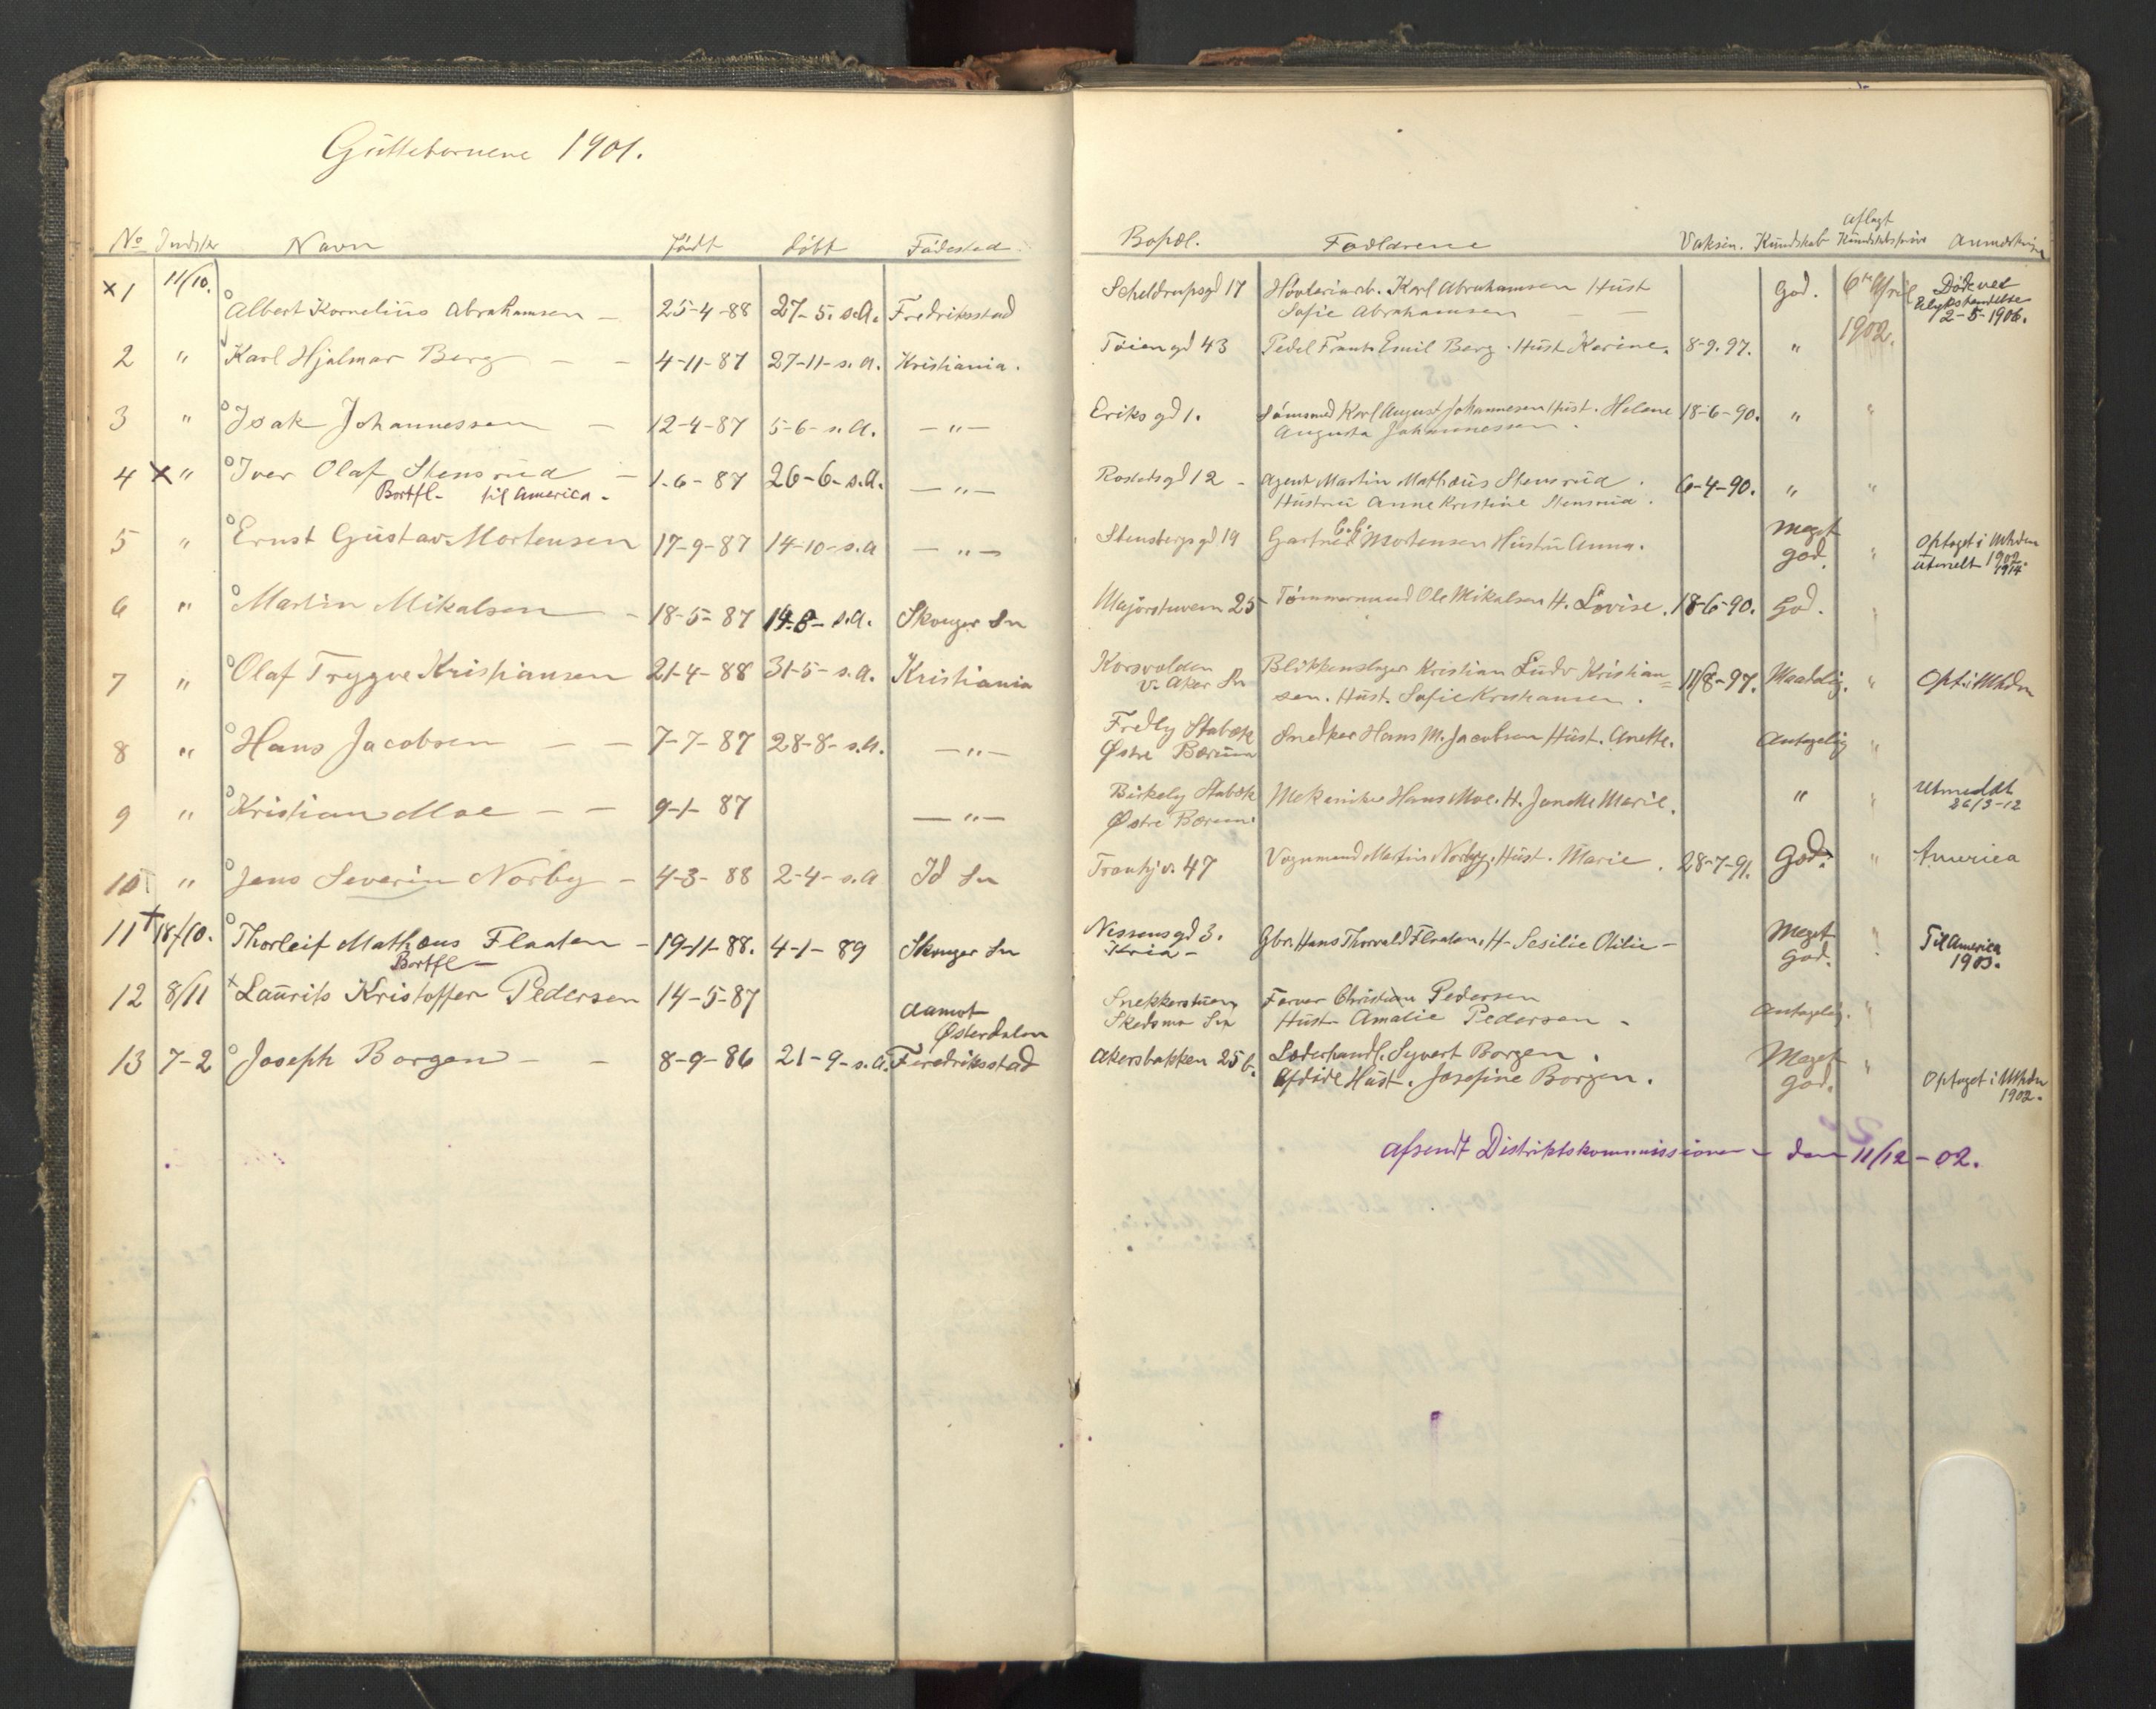 Guttebørnene 1901.
No Indskr Navn Født døbt Fødested
Bopæl. Forældrene Vaksin. Kundskab aflagt Kundskabsprøve Anmerkning
x1 11/10. Albert Kornelius Abrahamsen — 25-4-88 27-5-s.A. Fredriksstad
Scheldrupsgd 17 Høvleriarb. Karl Abrahamsen Hust God. 6te April Døde ved
Sofie Abrahamsen — — Ulykkshendelse
2-5-1906.
2 " Karl Hjalmar Berg — — 4-11-87 27-11-s.A. Kristiania.
Tøiengd 43 Pedel Frants Emil Berg. Hust Karine. 8-9.97. " 1902.
3 " Isak Johannessen — 12-4-87 5-6-s.A. —"—
Eriksgd 1. Karl August Johannesen Hust. Helene 18-6-90. " "
Augusta Johannessen.
4 x " Iver Olaf Stensrud — 1-6-87 26-6-s.A. —"—
Bortfl- til America.
Rostedsgd 12 - Agent Martin Mathæus Stensrud. 6-4-90. " "
Hustru Anne Kristine Stensrud.
5 " Ernst Gustav Mortensen 17-9-87 14-10-s.A —"—
Stensbergsgd 19 Gartner C.C. Mortensen Hustru Anna. Meget god. " Optaget i Mhdn
utmelt 1902
1914.
6 " Martin Mikalsen — 18-5-87 14-8-s.A. Skouger Sn
Majorstuvein 25 Tømmermand Ole Mikalsen H. Lovise. 18-6-90. God. "
7 " Olaf Trygve Kristiansen 21-4-88 31-5-s.A. Kristiania
Korsvolden Blikkenslager Kristian Ludv Kristian= 11/8-97. Maadelig. " Opt. i Mhdn
V. Aker Sn sen. Hust. Sofie Kristiansen.
8 " Hans Jacobsen — — 7-7-87 28-8-s.A. —"—
Fredly Stabæk Snedker Hans M. Jacobsen Hust. Anette. Antagelig "
Østre Bærum
9 " Kristian Moe — — 9-1-87 —"—
Birkely Stabæk Mekaniker Hans Moe. H. Janette Marie. " " Utmeldt
Østre Bærum. 26/3-12
10 " Jens Severin Norby — 4-3-88 2-4-s.A Id Sn
Trondhj v. 47 Vognmand Martin Norby. Hust. Marie. 28-7-91. God. " America
11+ 18/10. Thorleif Mathæus Flaaten — 19-11-88. 4-1-89 Skouger Sn
Bortfl —
Nissensgd 3. Gbr. Hans Thorvald Flaaten. H- Sesilie Otilie — Meget god. " Til America
Kria — 1903.
12 8/11 x Laurits Kristoffer Pedersen 14-5-87 Aamot
Østerdalen
Snekkerstuen Farver Christian Pedersen Antagelig. "
Skedsmo Sn Hust- Amalie Pedersen —
13 7-2 Joseph Borgen — — 8-9-86 21-9-s.A. Fredriksstad
Akersbakken 25 b. Læderhandl. Syvert Borgen. Meget god. "
Afdøde Hust. Josefine Borgen. Optaget i Mhdn
1902.
Afsendt Distriktskommissionen den 11/12-02.